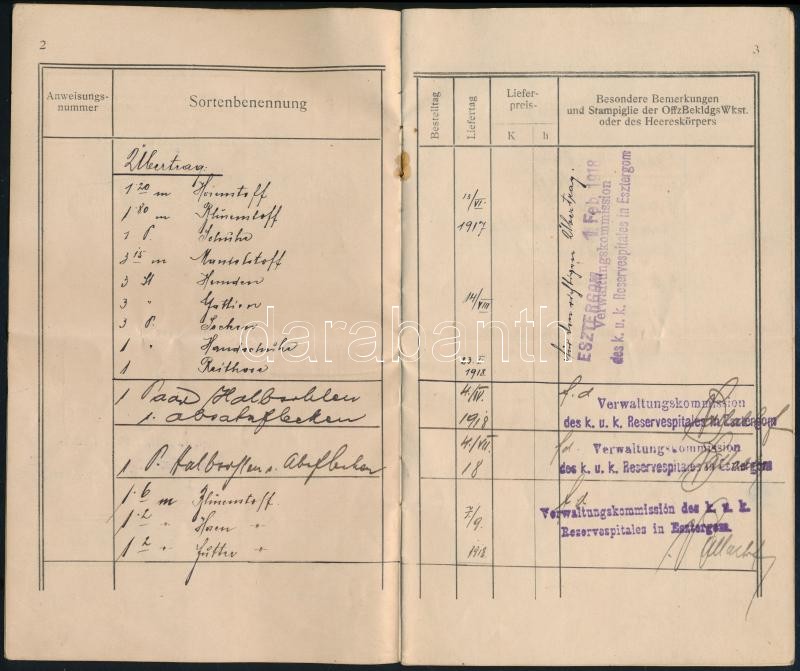 2
Anweisungs-
nummer
Sortenbenennung
Übertrag:
1 20 m Hosenstoff
1 80 m Blusenstoff
1 P. Schuhe
3 15 m Mantelstoff
3 St Hemden
3 " Gattien
3 P. Socken
1 " Handschuhe
1 Reithose
1 Paar Halbsohlen
u. Absatzflecken
1 P. Halbsohlen u. Absflecken
1.6 m Blusenstoff
1.2 " Hosen "
1 2 " Futter "
3
Bestelltag
Liefertag
Liefer-
preis-
K h
Besondere Bemerkungen
und Stampiglie der OffzBekldgsWkst.
oder des Heereskörpers
13/VI.
1917
14/VIII
23. I.
1918.
für den richtigen Übertrag.
ESZTERGOM 1. Feb. 1918
Verwaltungskommission
des k. u. k. Reservespitales in Esztergom
4./IV.
1918
f. d.
Verwaltungskommission
des k. u. k. Reservespitales in Esztergom
4./VII.
18
f. d.
Verwaltungskommission
des k. u. k. Reservespitales in Esztergom
7/9.
1918.
f. d.
Verwaltungskommission des k. u. k.
Reservespitales in Esztergom.
darabanth